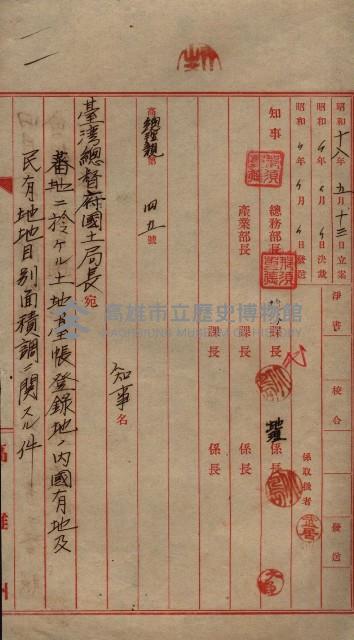 昭和十八年五月十三日立案
昭和 年 月 日決裁
昭和 年 月 日發送
淨書
校合
發送
知事
總務部長
產業部長
課長
課長
課長
地理係長
係長
係長
係取扱者
高總地親第 四五 號
知事名
臺灣總督府國土局長宛
蕃地ニ於ケル土地臺帳登錄地ノ内國有地及
民有地地目別面積調ニ関スル件
高雄州
高雄市立歷史博物館
KAOHSIUNG MUSEUM OF HISTORY